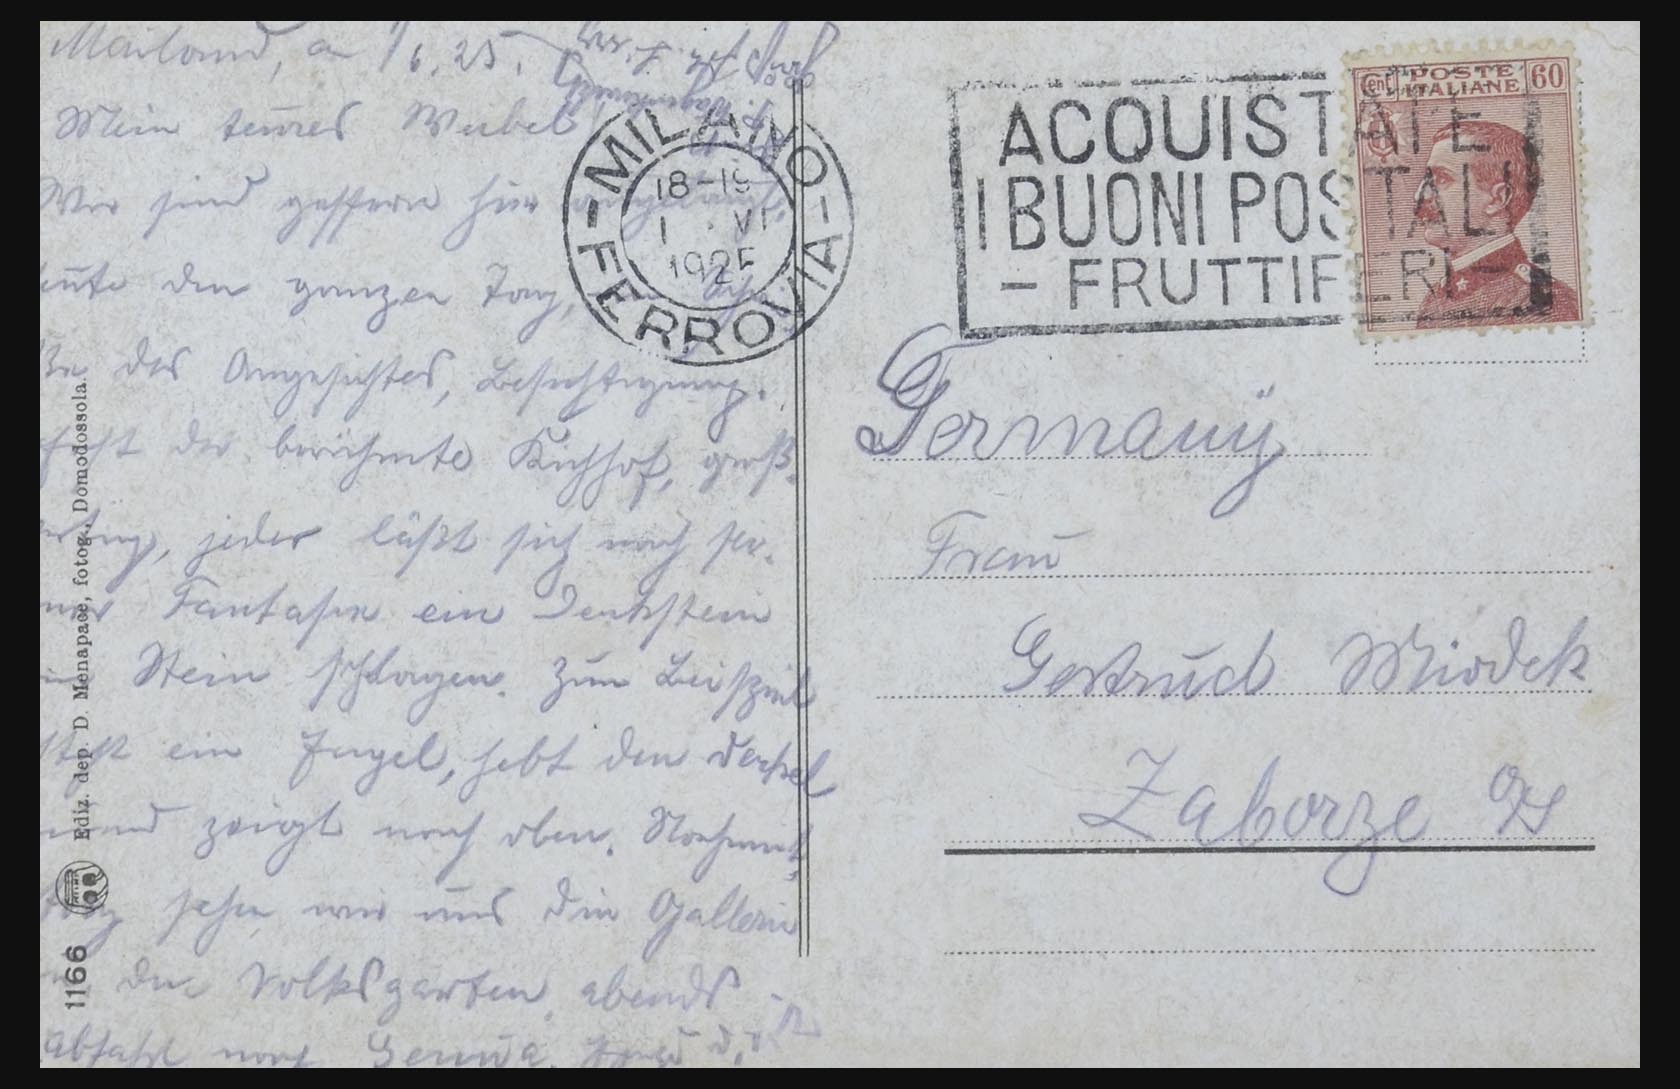 Mailand, a 1/6. 25.
Mein teures Weibel
Wir sind gestern hier angelangt,
heute den ganzen Tag,
des Angesichtes, Besichtigung.
der berühmte Kirchhof, groß-
artig, jeder läßt sich nach sei-
ner Fantasie ein Denkstein
in Stein schlagen. Zum Beispiel
ein Engel, hebt den Deckel
und zeigt nach oben. Nachmit-
tag sehen wir uns die Gallerie
den Volksgarten, abends
Abfahrt nach Genua.
MILANO
FERROVIA
18-19
1 . VI
1925
ACQUISTATE
I BUONI POSTALI
- FRUTTIFERI -
Cent
POSTE
ITALIANE
60
Germany
Frau
Gertrud Miodek
Zaborze O/S
1166
Ediz. dep. D. Menapace, fotog., Domodossola.